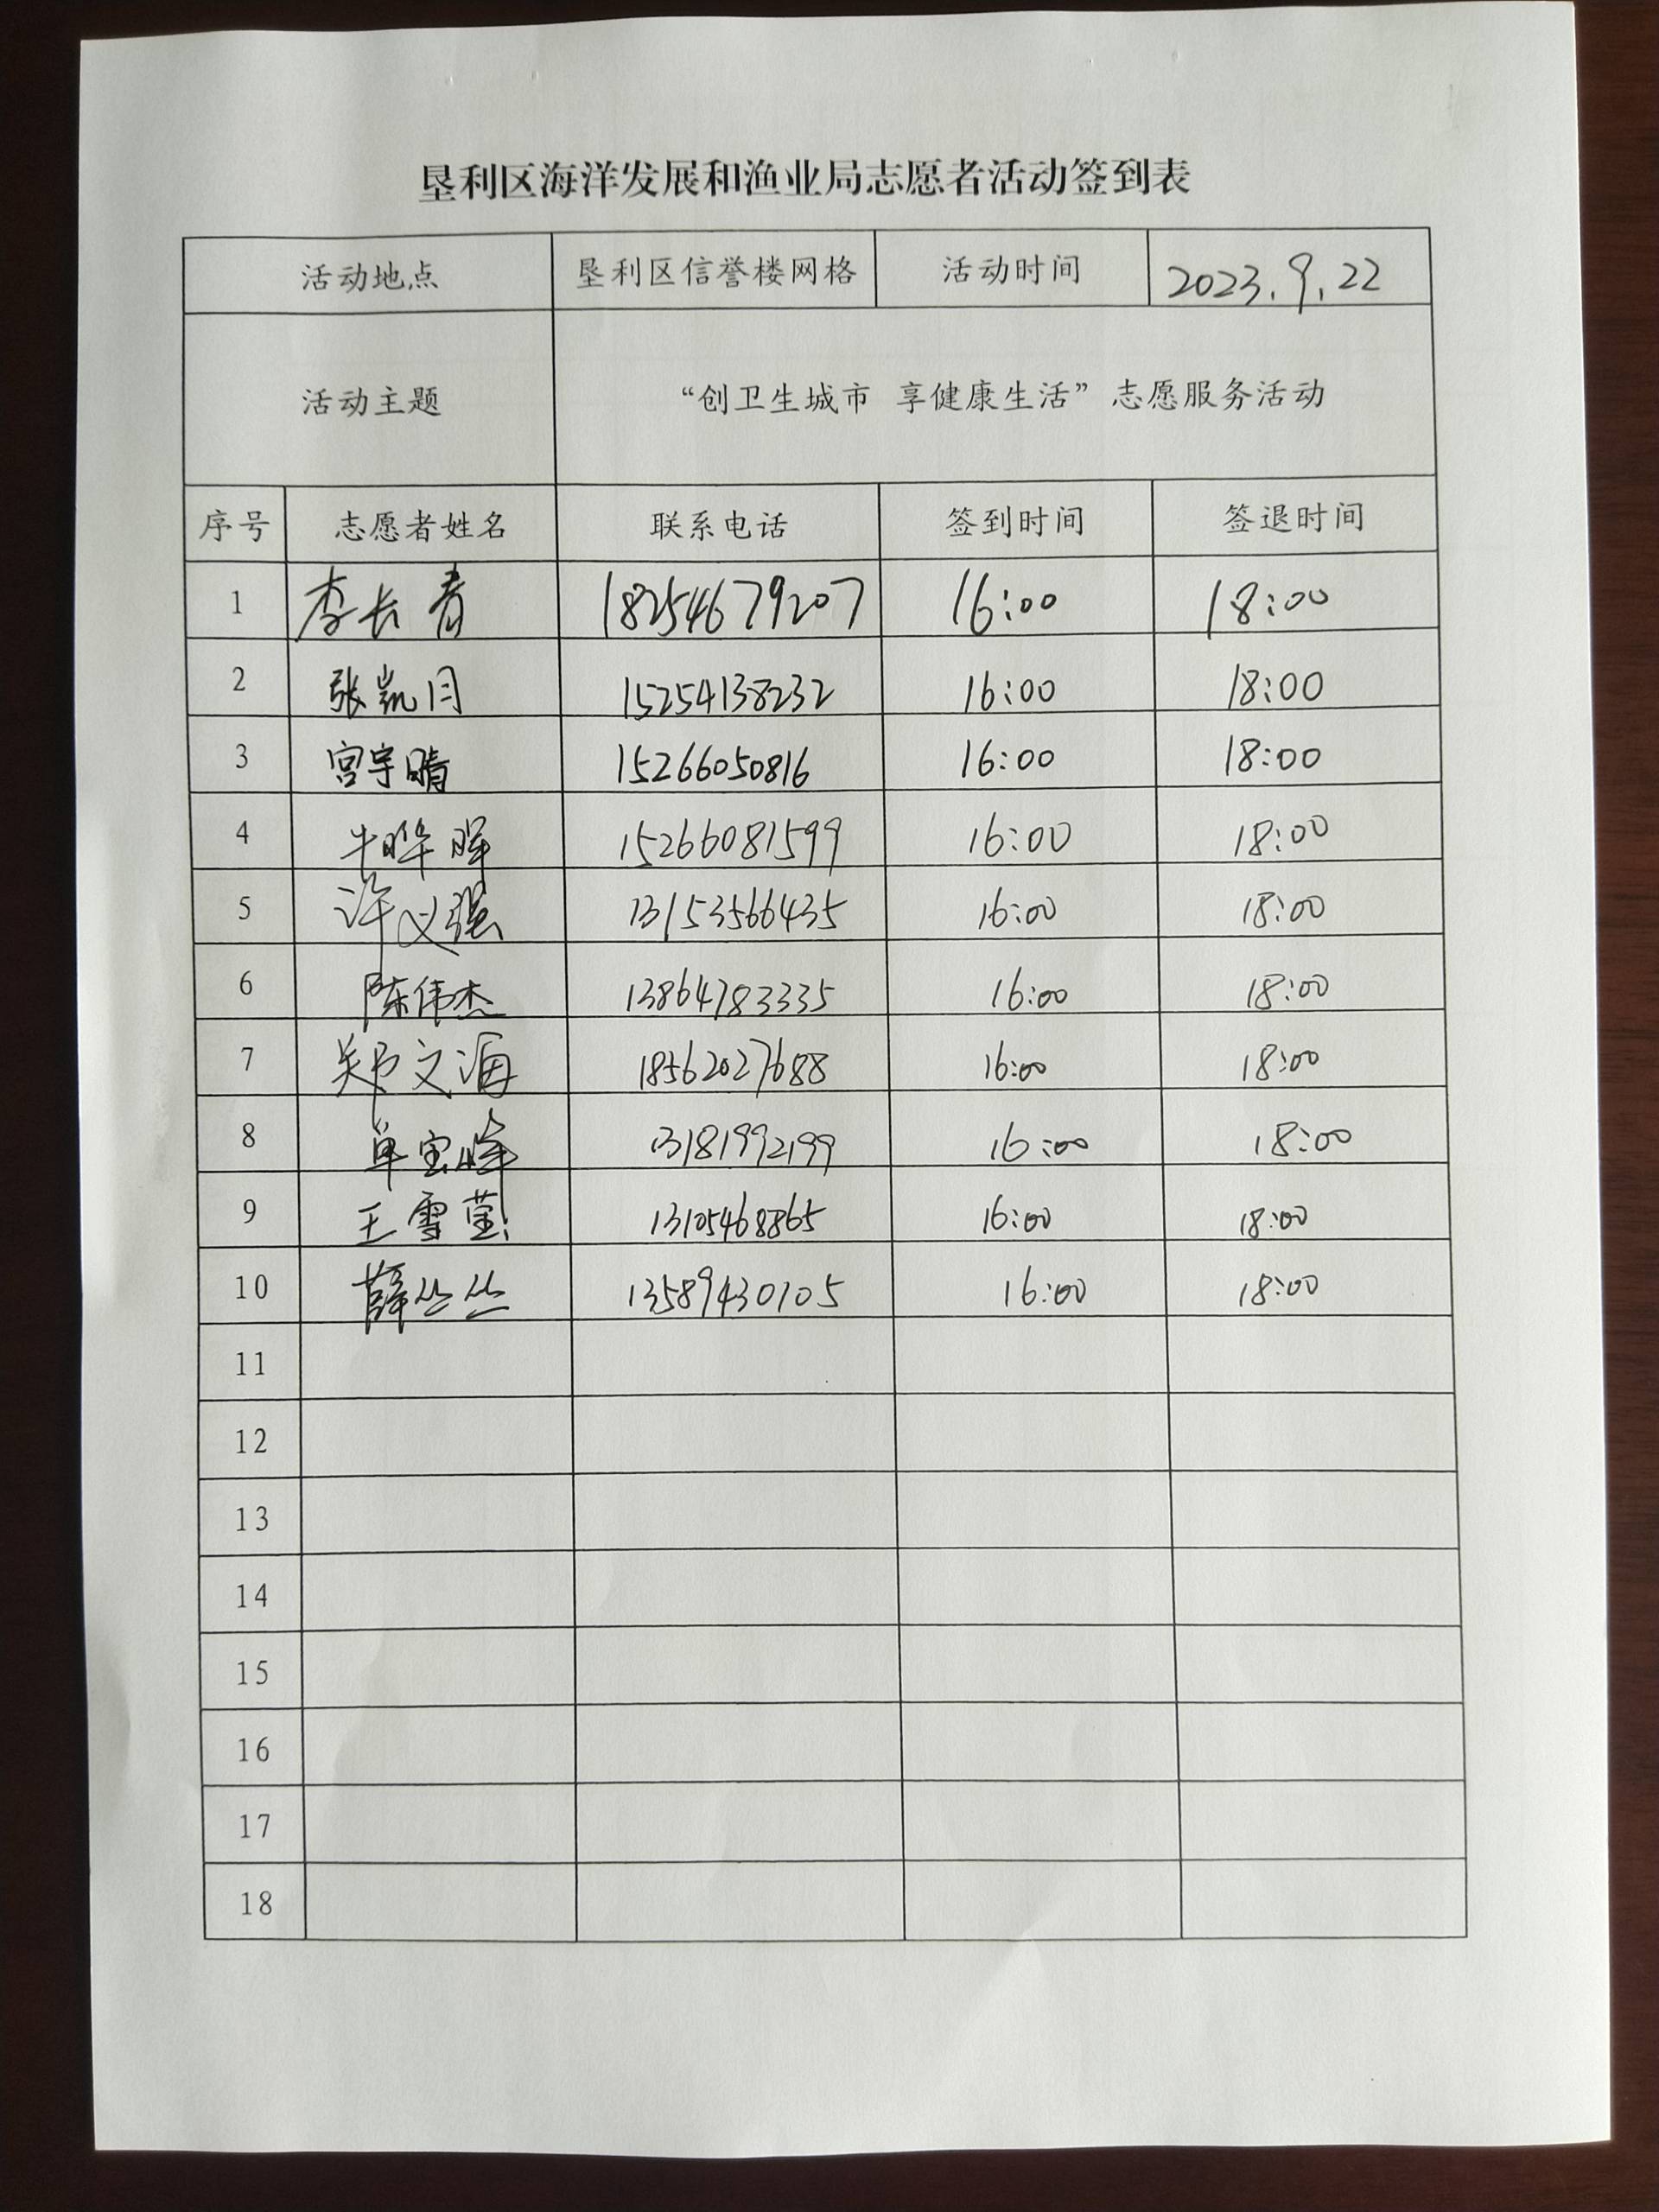 垦利区海洋发展和渔业局志愿者活动签到表
活动地点 垦利区信誉楼网格 活动时间 2023.9.22
活动主题 “创卫生城市 享健康生活”志愿服务活动
序号 志愿者姓名 联系电话 签到时间 签退时间
1 李长青 18254679207 16:00 18:00
2 张凯月 15254138232 16:00 18:00
3 宫宇晴 15266050816 16:00 18:00
4 牛晔晖 15266081599 16:00 18:00
5 许义强 13153566435 16:00 18:00
6 陈伟杰 13864783335 16:00 18:00
7 郑文海 18562027688 16:00 18:00
8 单宝峰 13181992199 16:00 18:00
9 王雪莹 13105468865 16:00 18:00
10 薛丛丛 13589430105 16:00 18:00
11
12
13
14
15
16
17
18